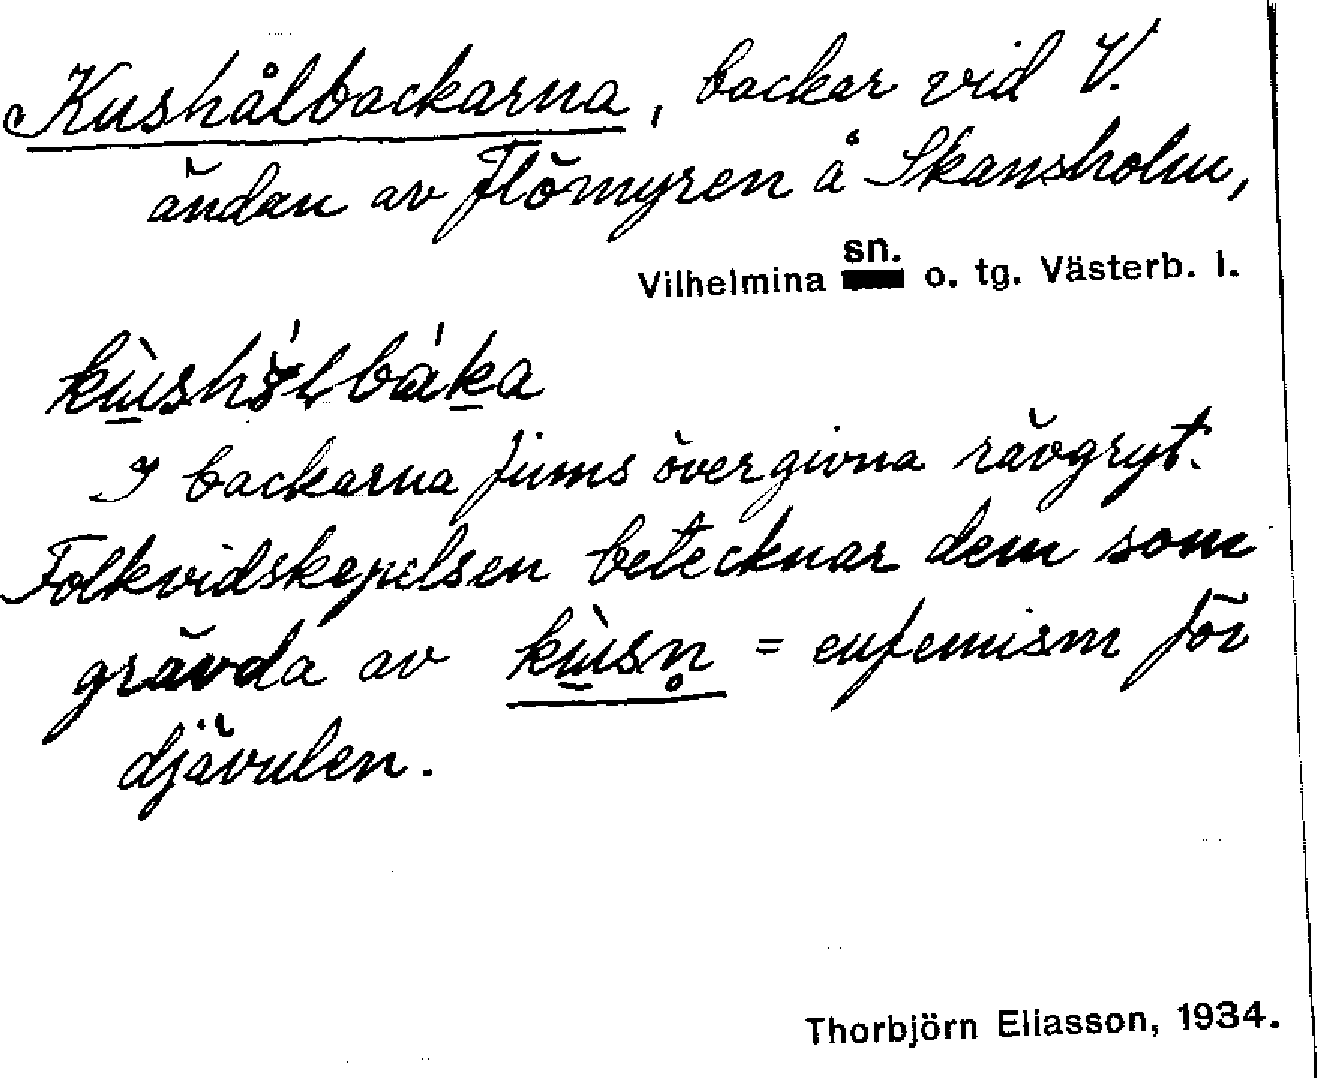 Kushålbackarna, backar vid V.
ändan av Flömyren å Skansholm,
Vilhelmina sn. o. tg. Västerb. l.
I backarna finns övergivna rävgryt.
Folkvidskepelsen betecknar dem som
grävda av kùsn̥ = eufemism för
djävulen.
Thorbjörn Eliasson, 1934.